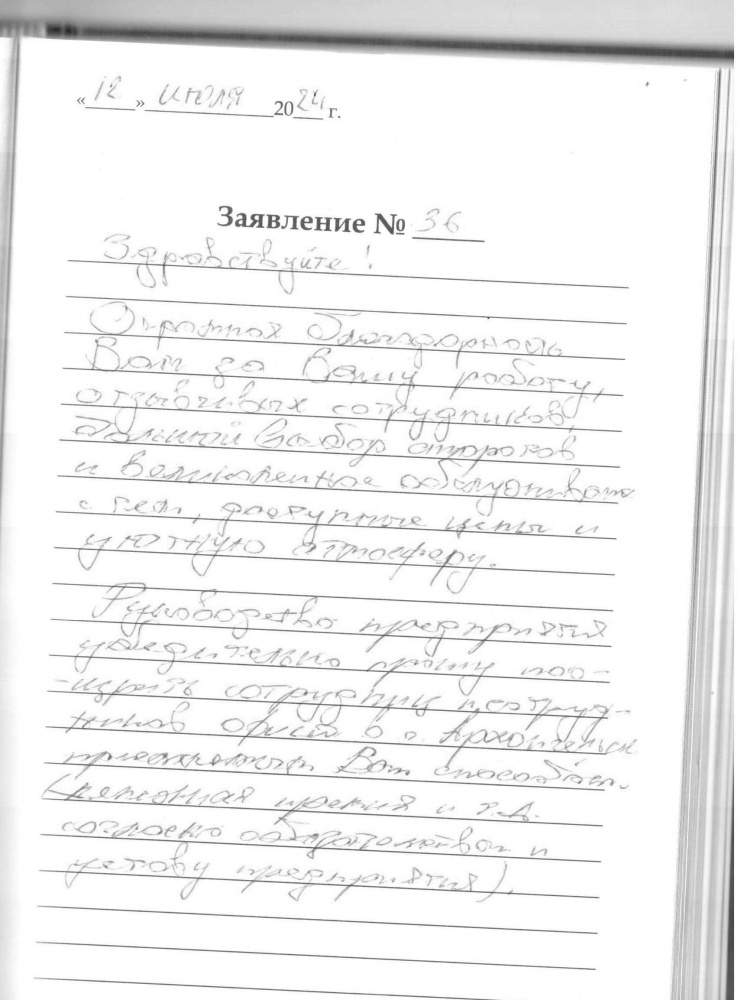 «12» июля 2024 г.
Заявление № 36
Здравствуйте!
Огромная благодарность
Вам за Вашу работу,
отзывчивых сотрудников,
большой выбор
и великолепное обслуживание
доступные цены и
уютную атмосферу.
Руководство предприятия
убедительно прошу поо-
-щрить сотрудниц и сотруд-
ников офиса в г. Архангельск
Вам способом.
(денежная премия и т.д.
согласно и
уставу предприятия).